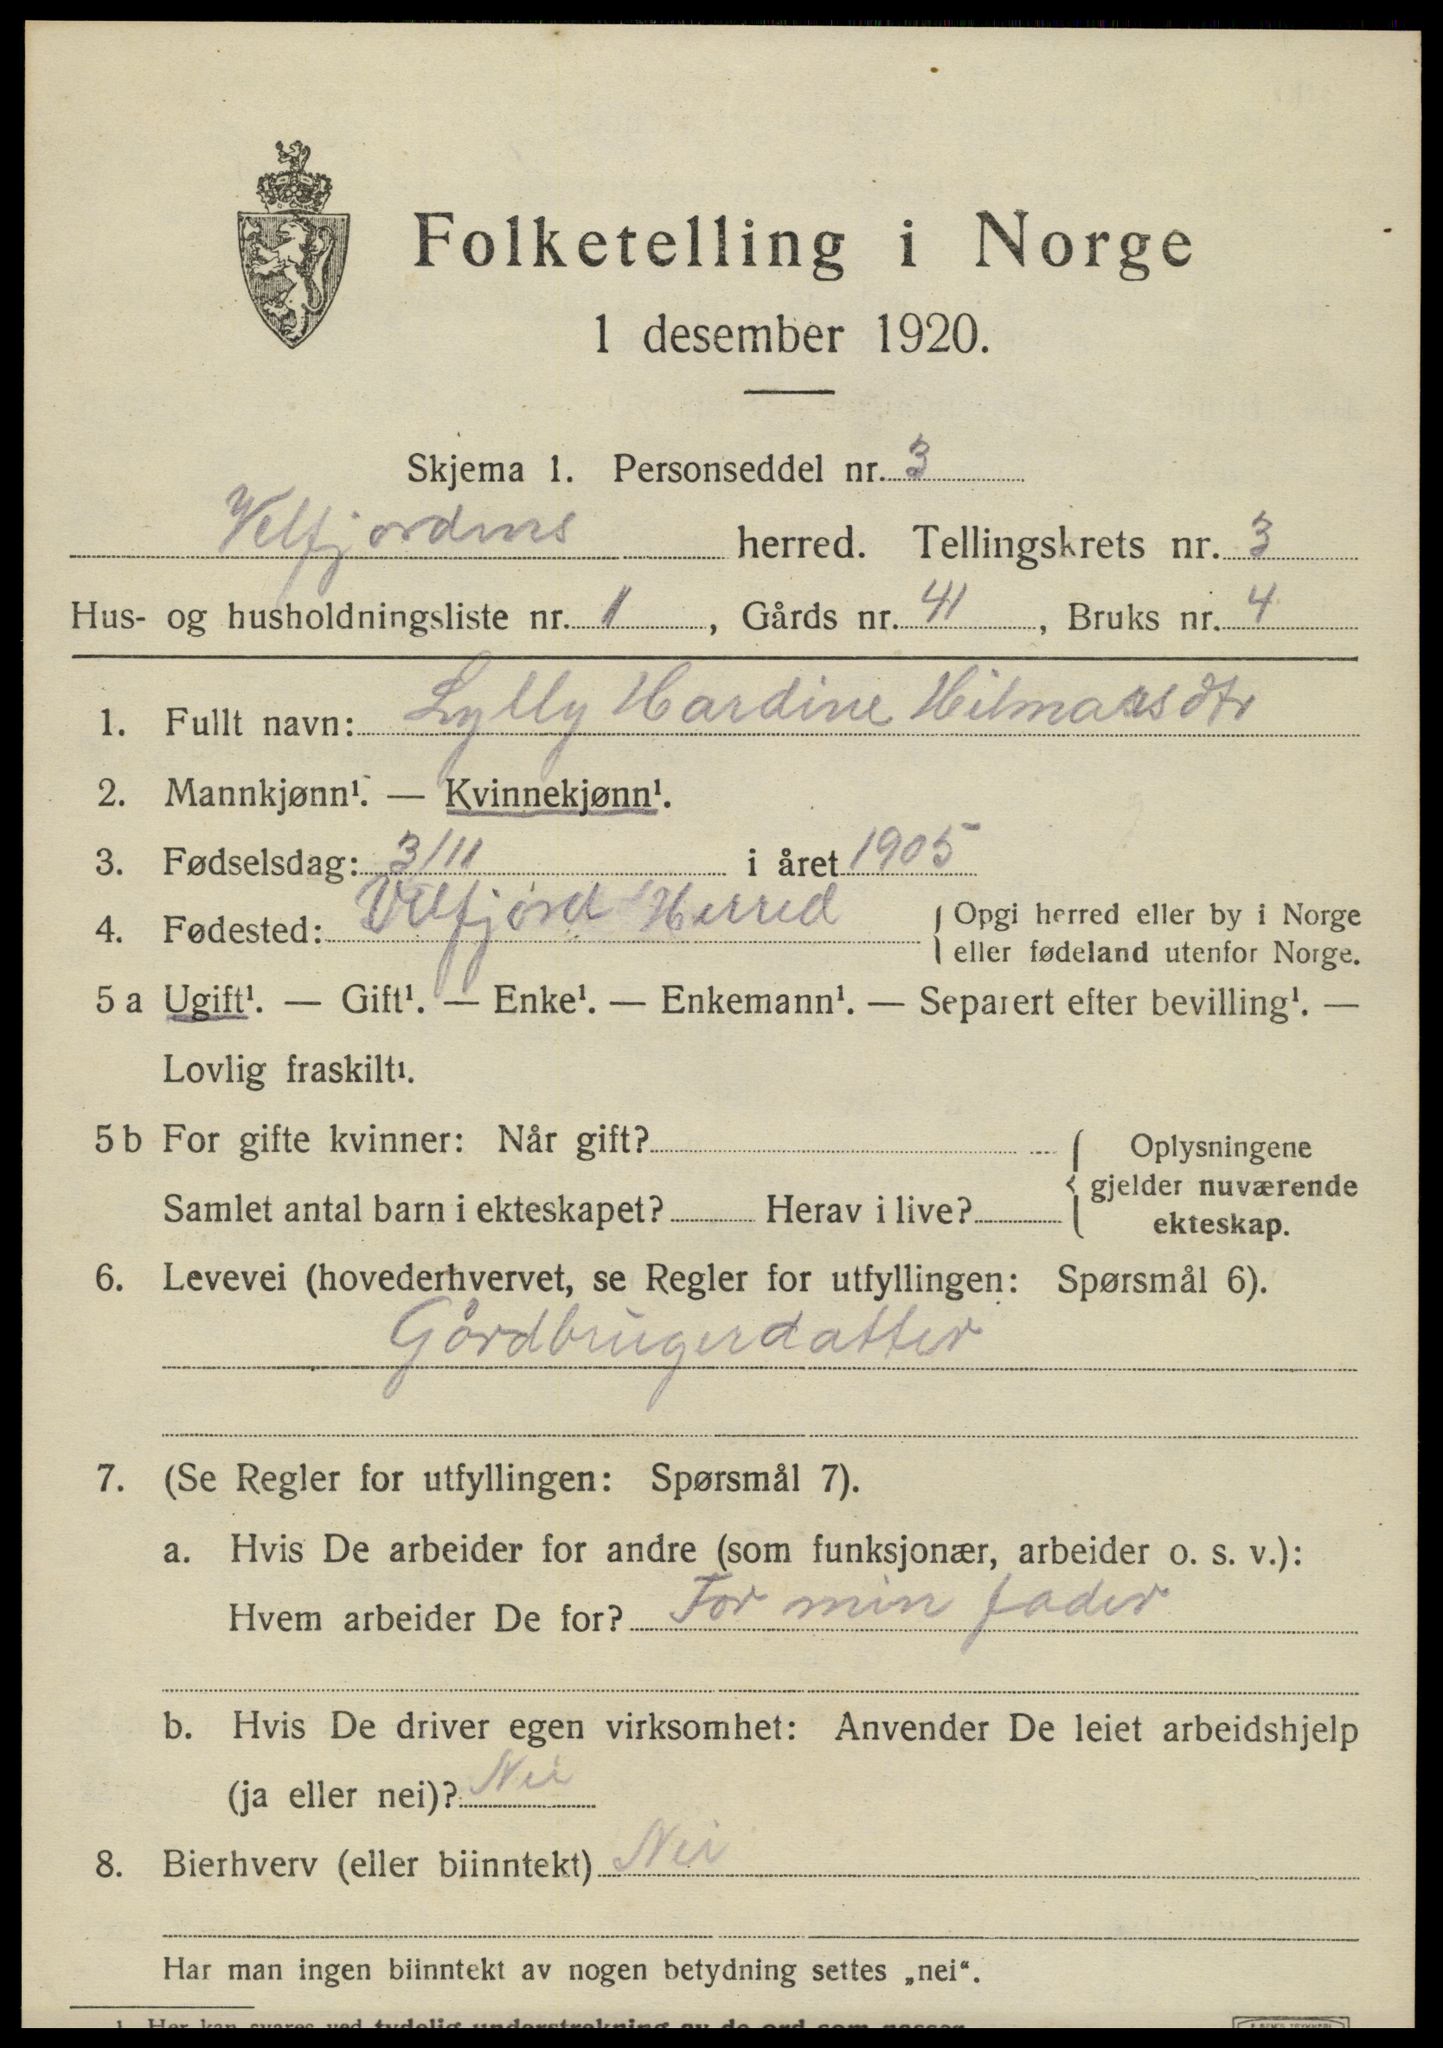 Folketelling i Norge
1 desember 1920.
Skjema 1. Personseddel nr. 3
Velfjordens herred. Tellingskrets nr. 3
Hus- og husholdningsliste nr. 1, Gårds nr. 41, Bruks nr. 4
1. Fullt navn: Lylly Hardine Hilmarsdtr
2. Mannkjønn¹. — Kvinnekjønn¹.
3. Fødselsdag: 3/11 i året 1905
4. Fødested: Velfjord Herred { Opgi herred eller by i Norge
eller fødeland utenfor Norge.
5 a Ugift¹. — Gift¹. — Enke¹. — Enkemann¹. — Separert efter bevilling¹. —
Lovlig fraskilt¹.
5 b For gifte kvinner: Når gift? { Oplysningene
gjelder nuværende
Samlet antal barn i ekteskapet? Herav i live? ekteskap.
6. Levevei (hovederhvervet, se Regler for utfyllingen: Spørsmål 6).
Gårdbrugerdatter
7. (Se Regler for utfyllingen: Spørsmål 7).
a. Hvis De arbeider for andre (som funksjonær, arbeider o. s. v.):
Hvem arbeider De for? For min fader
b. Hvis De driver egen virksomhet: Anvender De leiet arbeidshjelp
(ja eller nei)? Nei
8. Bierhverv (eller biinntekt) Nei
Har man ingen biinntekt av nogen betydning settes „nei“.
1 Her kan svares ved tydelig understrekning av de ord som passer.